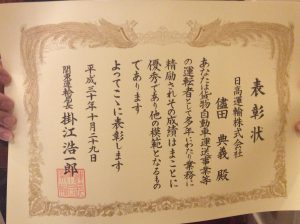 表彰状
日高運輸株式会社
儘田 典義 殿
あなたは貨物自動車運送事業等
の運転者として多年にわたり業務に
精励されその成績はまことに
優秀であり他の模範となるもの
であります
よってここに表彰します
平成三十年十月二十九日
関東運輸局長 掛江浩一郎